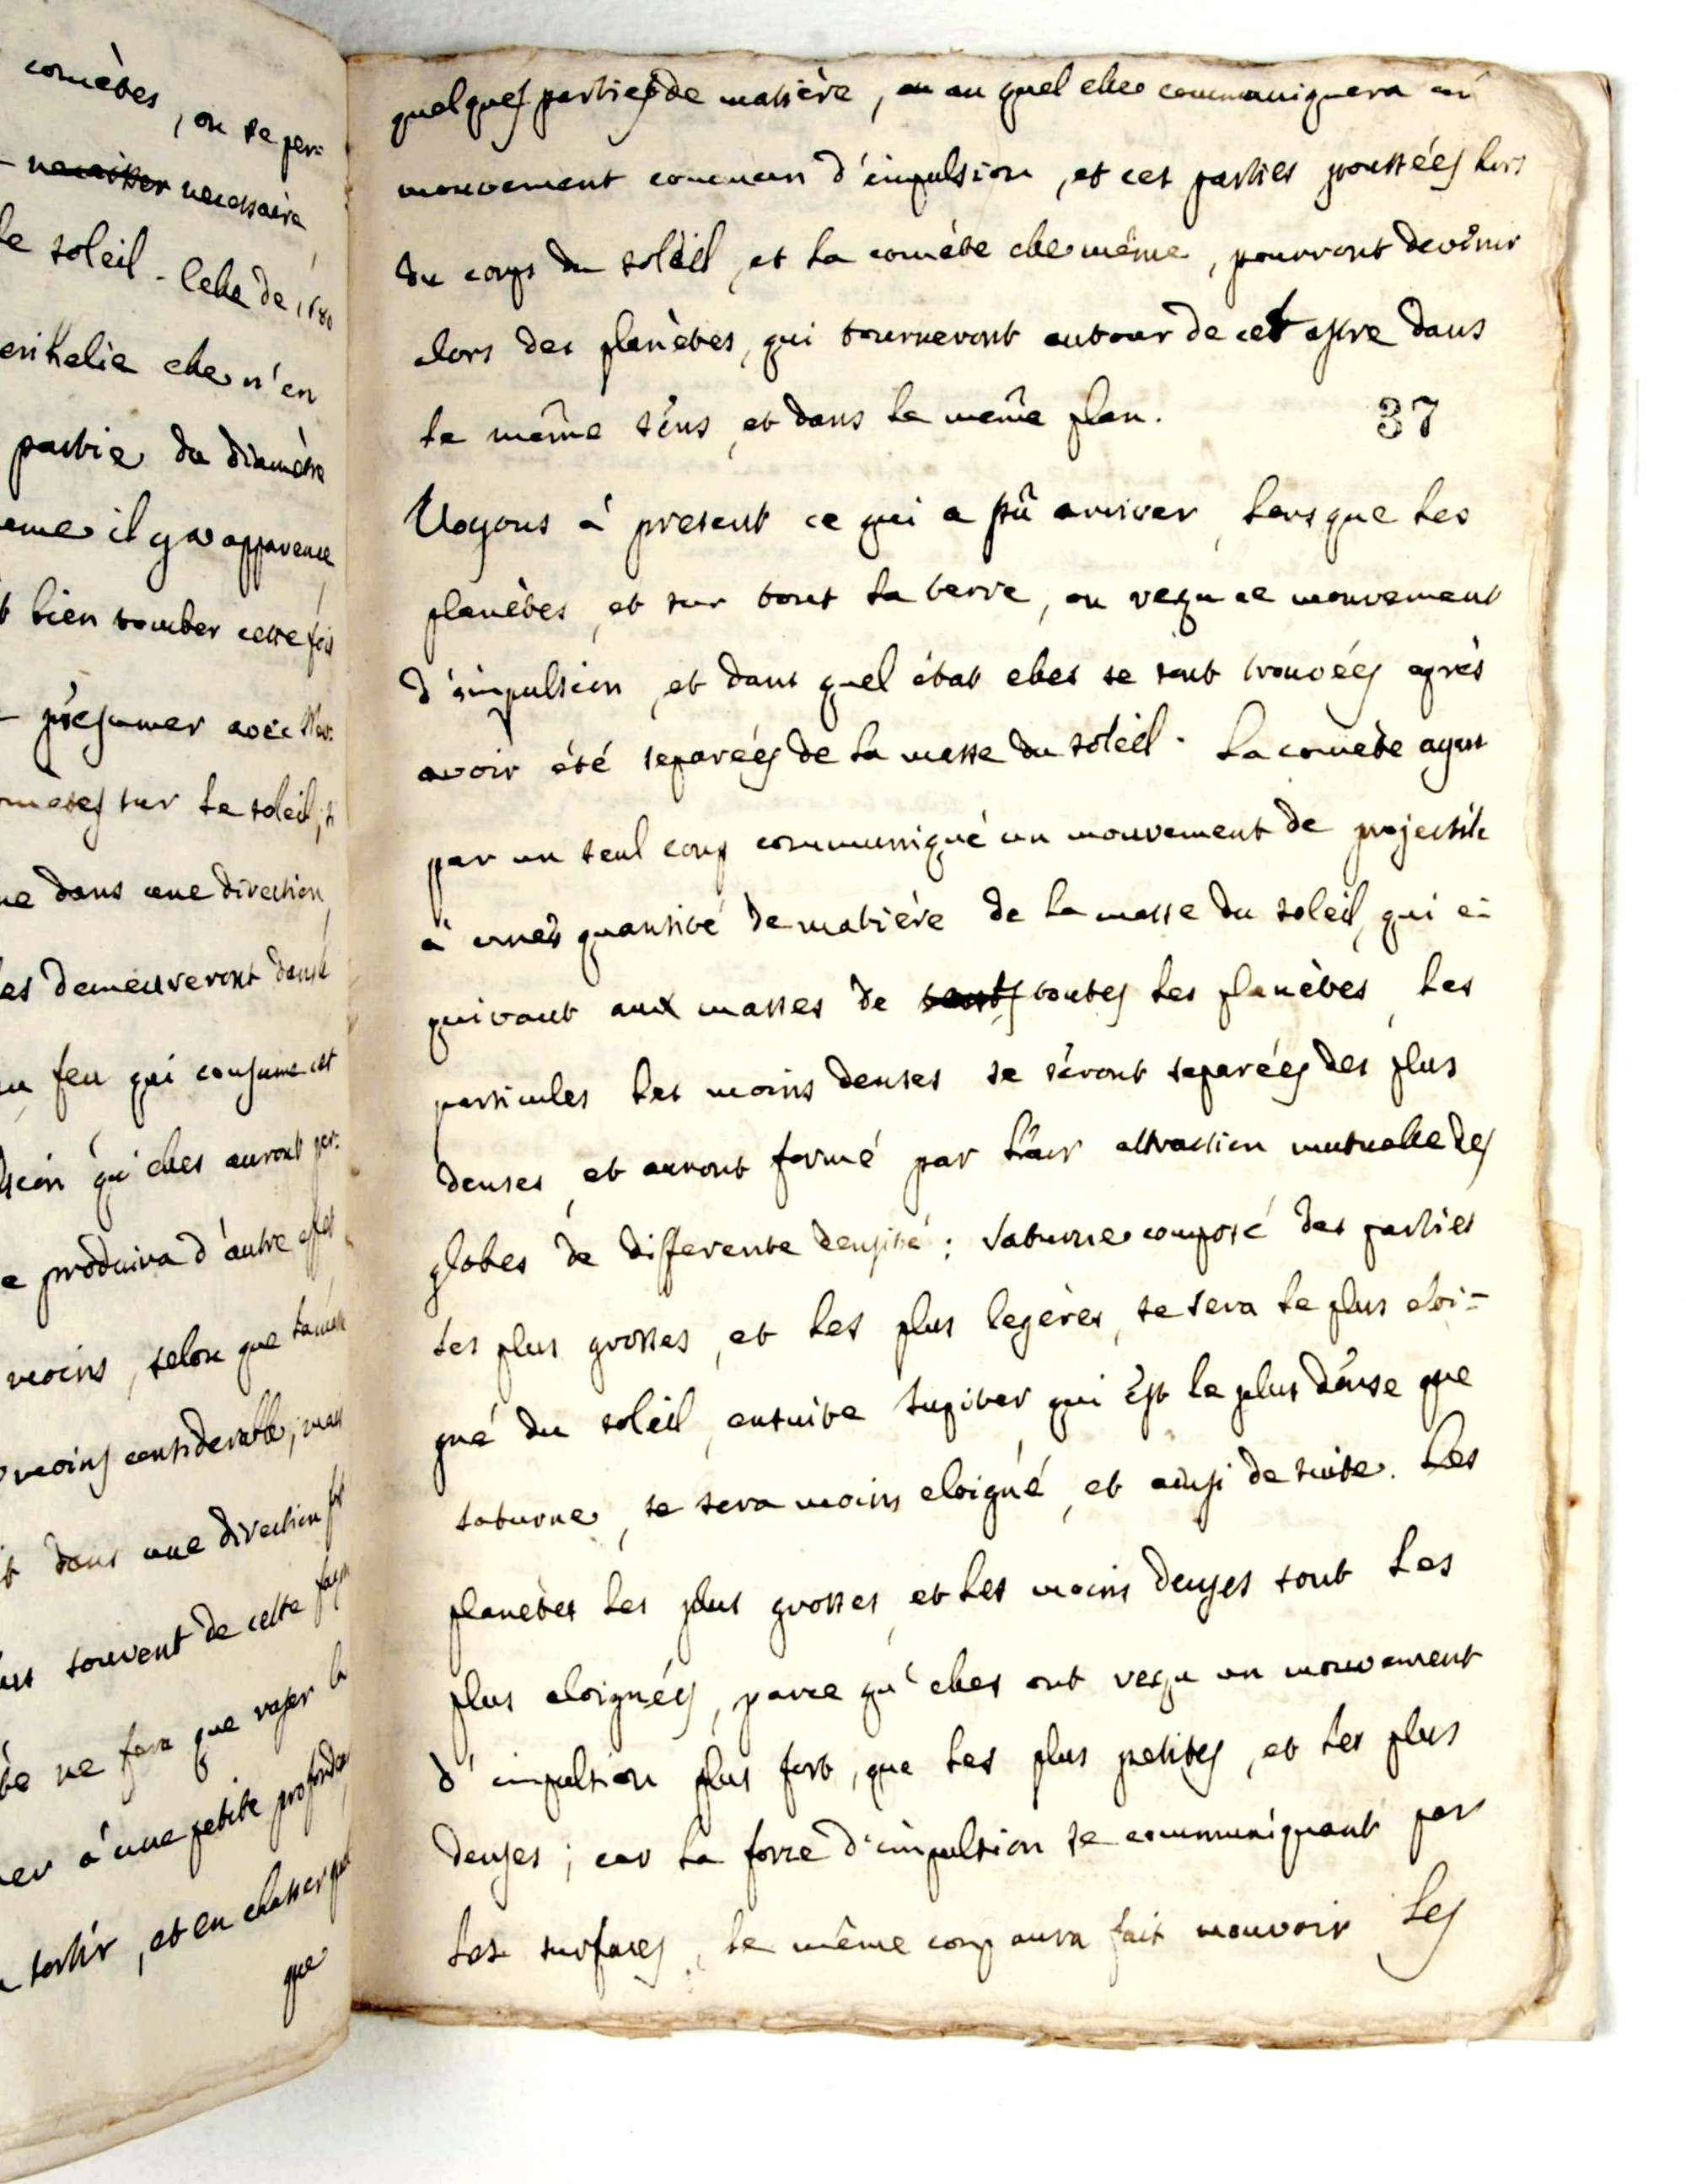 comètes, on se per=
necessaire
le soleil. Celle de 1680
perihelie elle n'en
partie du diamètre
il y a apparence
bien tomber cette fois
présumer avec
sur le soleil, si
dans une direction,
demeureront dans le
feu qui consume cet
qu'elles auront per=
produira d'autre effet
moins, selon que la masse
moins considerable, mais
dans une direction fort
souvent de cette façon
ne fera que raser la
à une petite profondeur
sortir, et en chasser quel
que
quelques parties de matière, au quel elle communiquera un
mouvement commun d'impulsion, et ces parties poussées hors
du corps du soleil, et la comète elle même, pourront devenir
alors des planètes, qui tourneront autour de cet astre dans
le même sens, et dans le même plan. 37
Voyons à present ce qui a pû arriver, lorsque les
planètes, et sur tout la terre, on reçu ce mouvement
d'impulsion, et dans quel état elles se sont trouvées aprés
avoir été separées de la masse du soleil. La comète ayant
par un seul coup communiqué un mouvement de projectile
à une quantité de matière de la masse du soleil, qui é=
quivaut aux masses de toutes les planètes, les
particules les moins denses se seront separées des plus
denses, et auront formé par leur attraction mutuelle des
globes de differente densité: Saturne composé des parties
les plus grosses, et les plus legères, se sera le plus eloi=
gné du soleil, ensuite Jupiter qui est le plus dense que
saturne, se sera moins eloigné, et ainsi de suite. Les
planètes les plus grosses, et les moins denses sont les
plus eloignées, parce qu'elles ont reçu un mouvement
d'impulsion plus fort, que les plus petites, et les plus
denses; car la force d'impulsion se communiquant par
les surfaces, le même coup aura fait mouvoir les